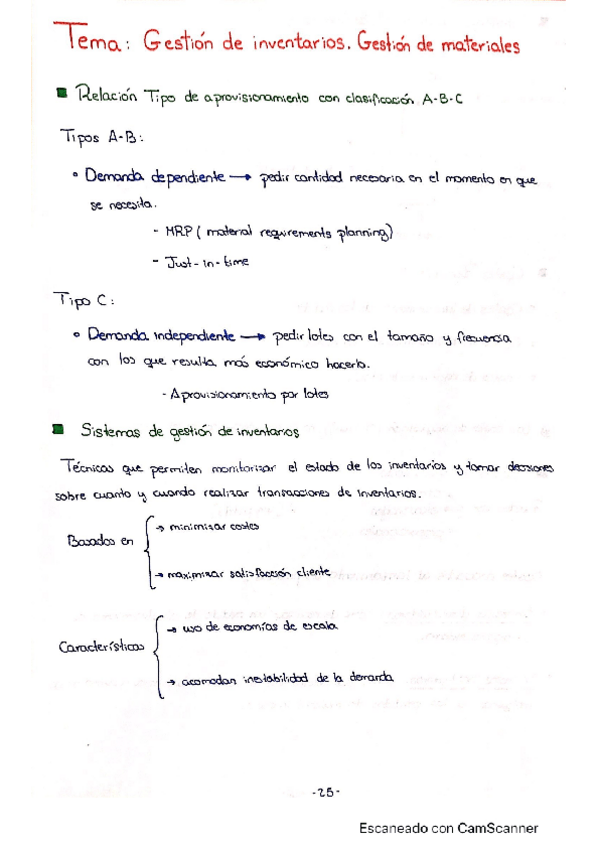 Tema: Gestión de inventarios. Gestión de materiales
Relación Tipo de aprovisionamiento con clasificación A-B-C
Tipos A-B:
• Demanda dependiente → pedir cantidad necesaria en el momento en que
se necesita.
- MRP ( material requirements planning)
- Just-in-time
Tipo C:
• Demanda independiente → pedir lotes con el tamaño y frecuencia
con los que resulta más económico hacerlo.
- Aprovisionamiento por lotes
Sistemas de gestión de inventarios
Técnicas que permiten monitorizar el estado de los inventarios y tomar decisiones
sobre cuanto y cuando realizar transacciones de inventarios.
Basados en
→ minimizar costes
→ maximizar satisfacción cliente
Características
→ uso de economías de escala
→ acomodan inestabilidad de la demanda
-25-
Escaneado con CamScanner